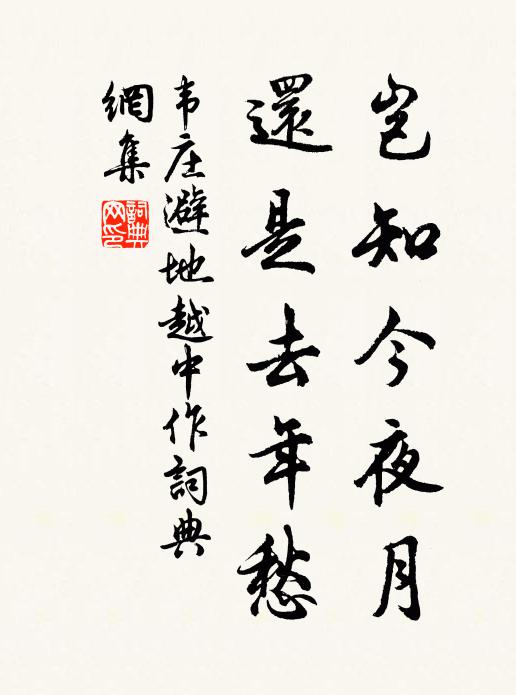 豈知今夜月
還是去年愁
韦庄避地越中作詞典
網集
詞典
网印